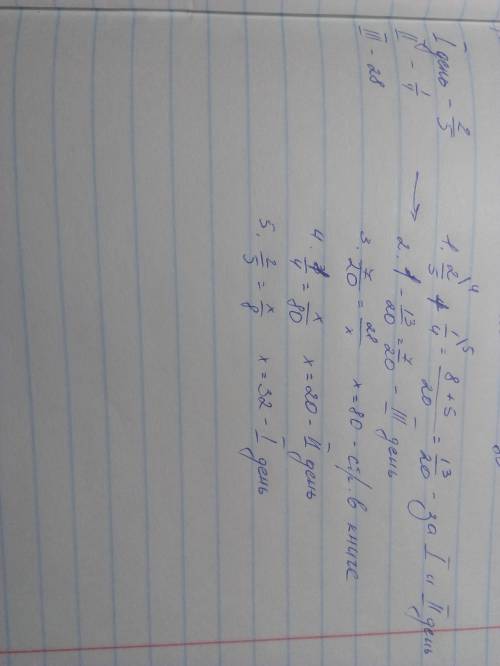 I день - 2/5
II - 1/4
III - 28
→
1. 2/5 \4 + 1/4 \5 = 8+5/20 = 13/20 - за I и II день
2. 1 20/20 - 13/20 = 7/20 - III день
3. 7/20 = 28/x x = 80 - стр. в книге
4. 1/4 = x/80 x = 20 - II день
5. 2/5 = x/8 x = 32 - I день
80